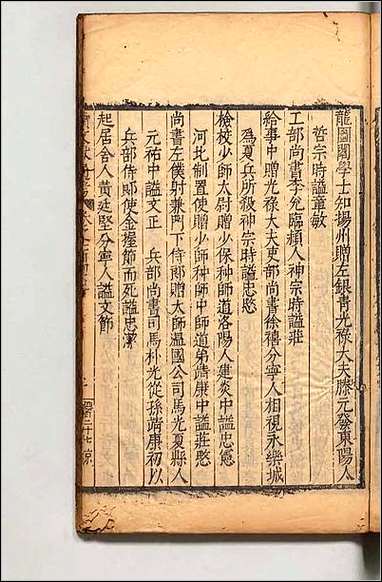 龍圖閣學士知揚州贈左銀青光祿大夫滕元發東陽人
哲宗時謚章敏
工部尚書李兊臨潁人神宗時謚莊
給事中贈光祿大夫吏部尚書徐禧分寧人相視永樂城
爲夏兵所殺神宗時謚忠愍
檢校少師太尉贈少保种師道洛陽人建炎中謚忠憲
河北制置使贈少師种師中師道弟靖康中謚莊愍
尚書左僕射兼門下侍郎贈大師温國公司馬光夏縣人
元祐中謚文正 兵部尚書司馬朴光從孫靖康初以
兵部侍郎使金握節而死謚忠潔
起居舍人黃廷堅分寧人謚文節